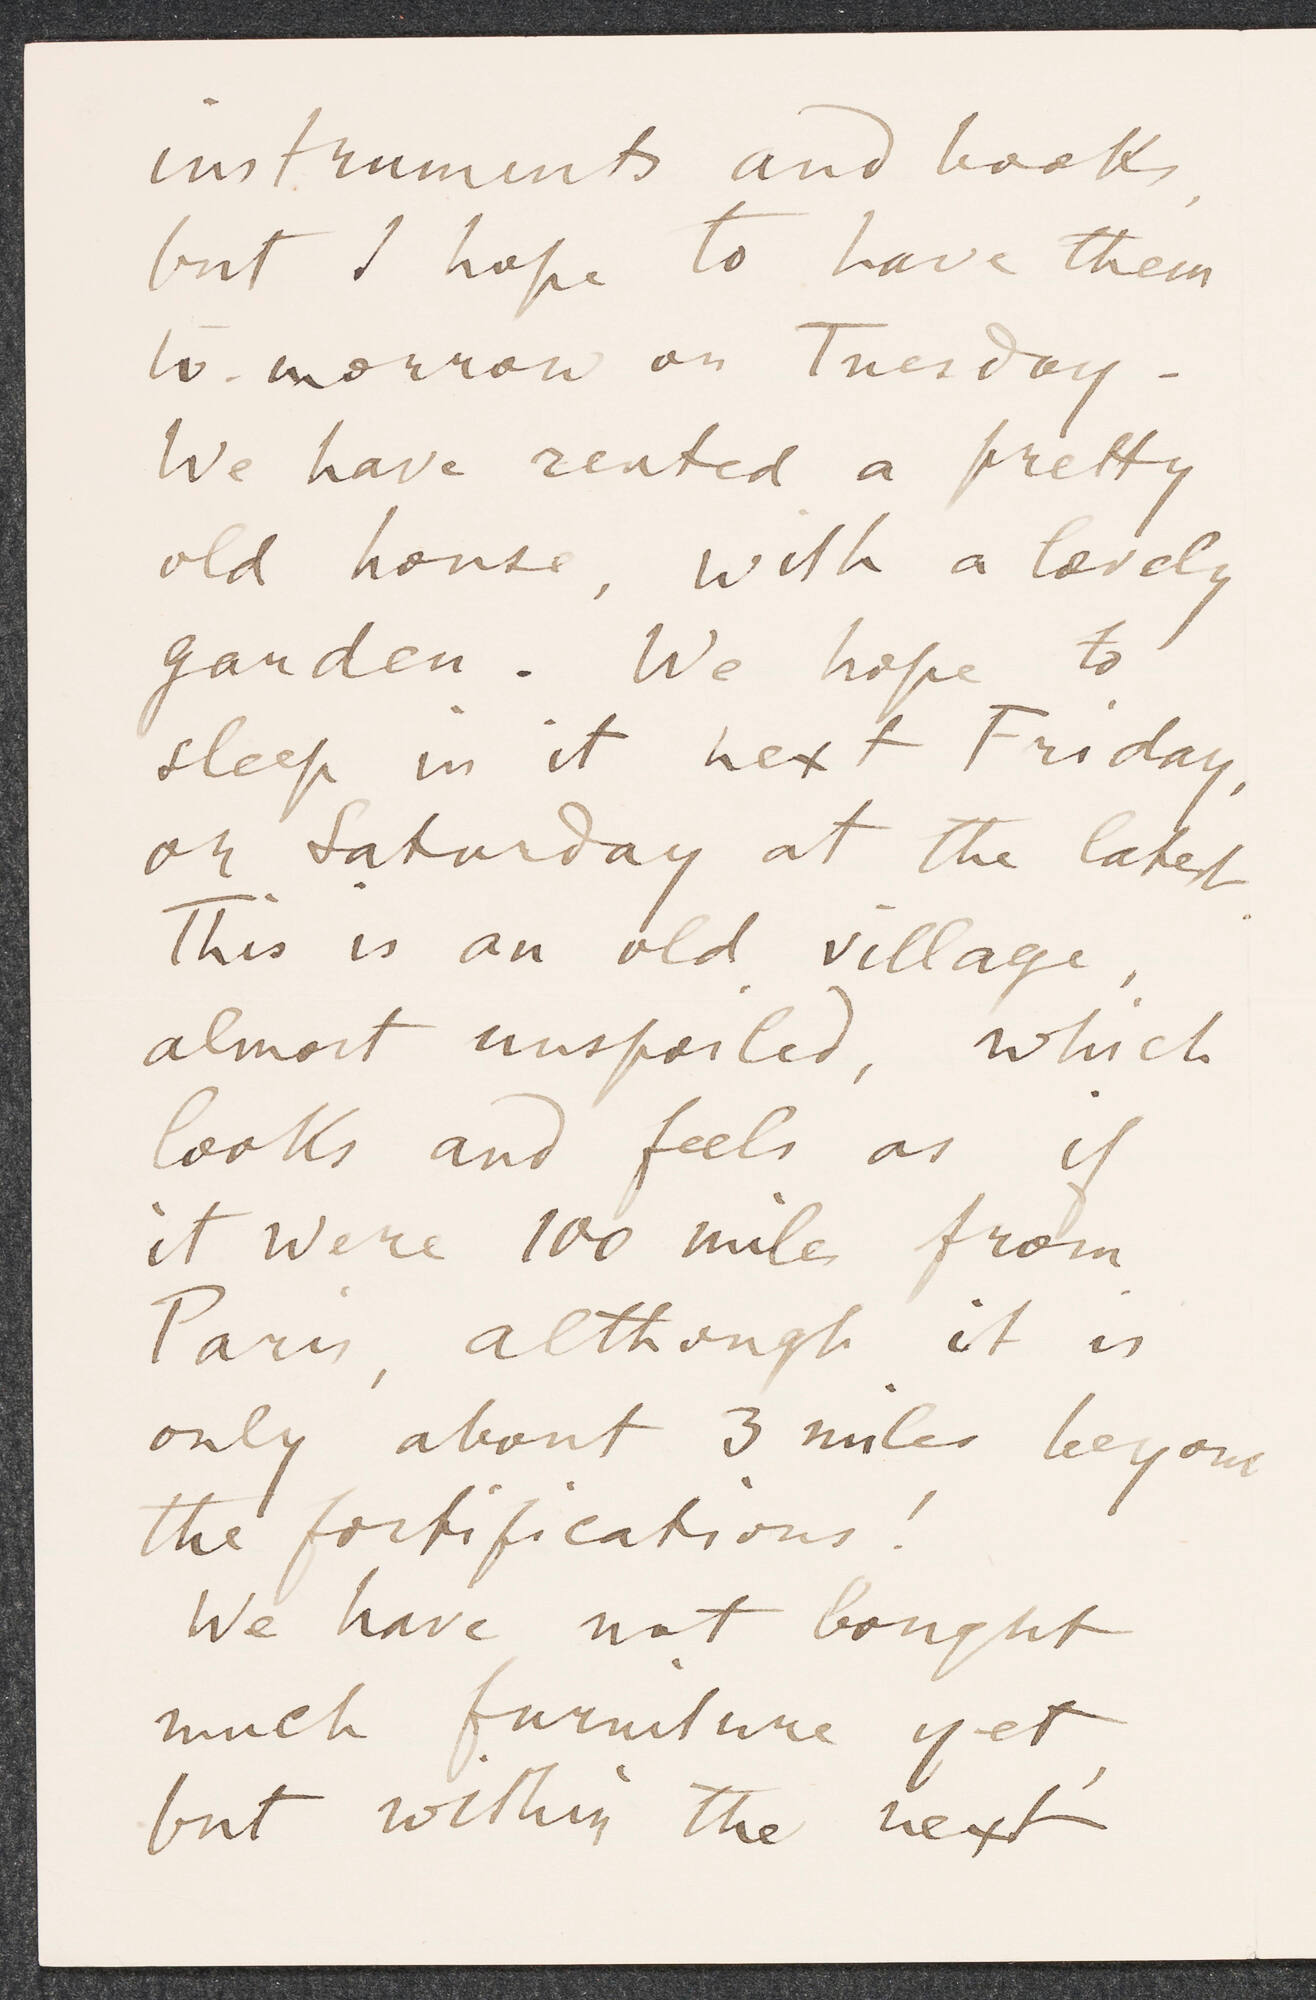 instruments and books,
but I hope to have them
to-morrow or Tuesday -
We have rented a pretty
old house, with a lovely
garden. We hope to
sleep in it next Friday,
or Saturday at the latest.
This is an old village,
almost unspoiled, which
looks and feels as if
it were 100 miles from
Paris, although it is
only about 3 miles beyond
the fortifications!
We have not bought
much furniture yet,
but within the next